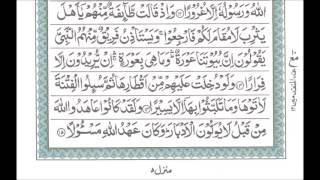 اللّٰهُ وَرَسُولُهٗٓ اِلَّا غُرُوْرًا ﴿۱۲﴾ وَاِذْ قَالَتْ طَّآىِٕفَةٌ مِّنْهُمْ يٰٓاَهْلَ
يَثْرِبَ لَا مُقَامَ لَكُمْ فَارْجِعُوْا ۚ وَيَسْتَاْذِنُ فَرِيْقٌ مِّنْهُمُ النَّبِيَّ
يَقُوْلُوْنَ اِنَّ بُيُوْتَنَا عَوْرَةٌ ۛ وَمَا هِيَ بِعَوْرَةٍ ۛ اِنْ يُّرِيْدُوْنَ اِلَّا
فِرَارًا ﴿۱۳﴾ وَلَوْ دُخِلَتْ عَلَيْهِمْ مِّنْ اَقْطَارِهَا ثُمَّ سُىِٕلُوا الْفِتْنَةَ
لَاٰتَوْهَا وَمَا تَلَبَّثُوْا بِهَآ اِلَّا يَسِيْرًا ﴿۱۴﴾ وَلَقَدْ كَانُوْا عَاهَدُوا اللّٰهَ
مِنْ قَبْلُ لَا يُوَلُّوْنَ الْاَدْبَارَ ؕ وَكَانَ عَهْدُ اللّٰهِ مَسْـُٔوْلًا ﴿۱۵﴾
منزل ۵